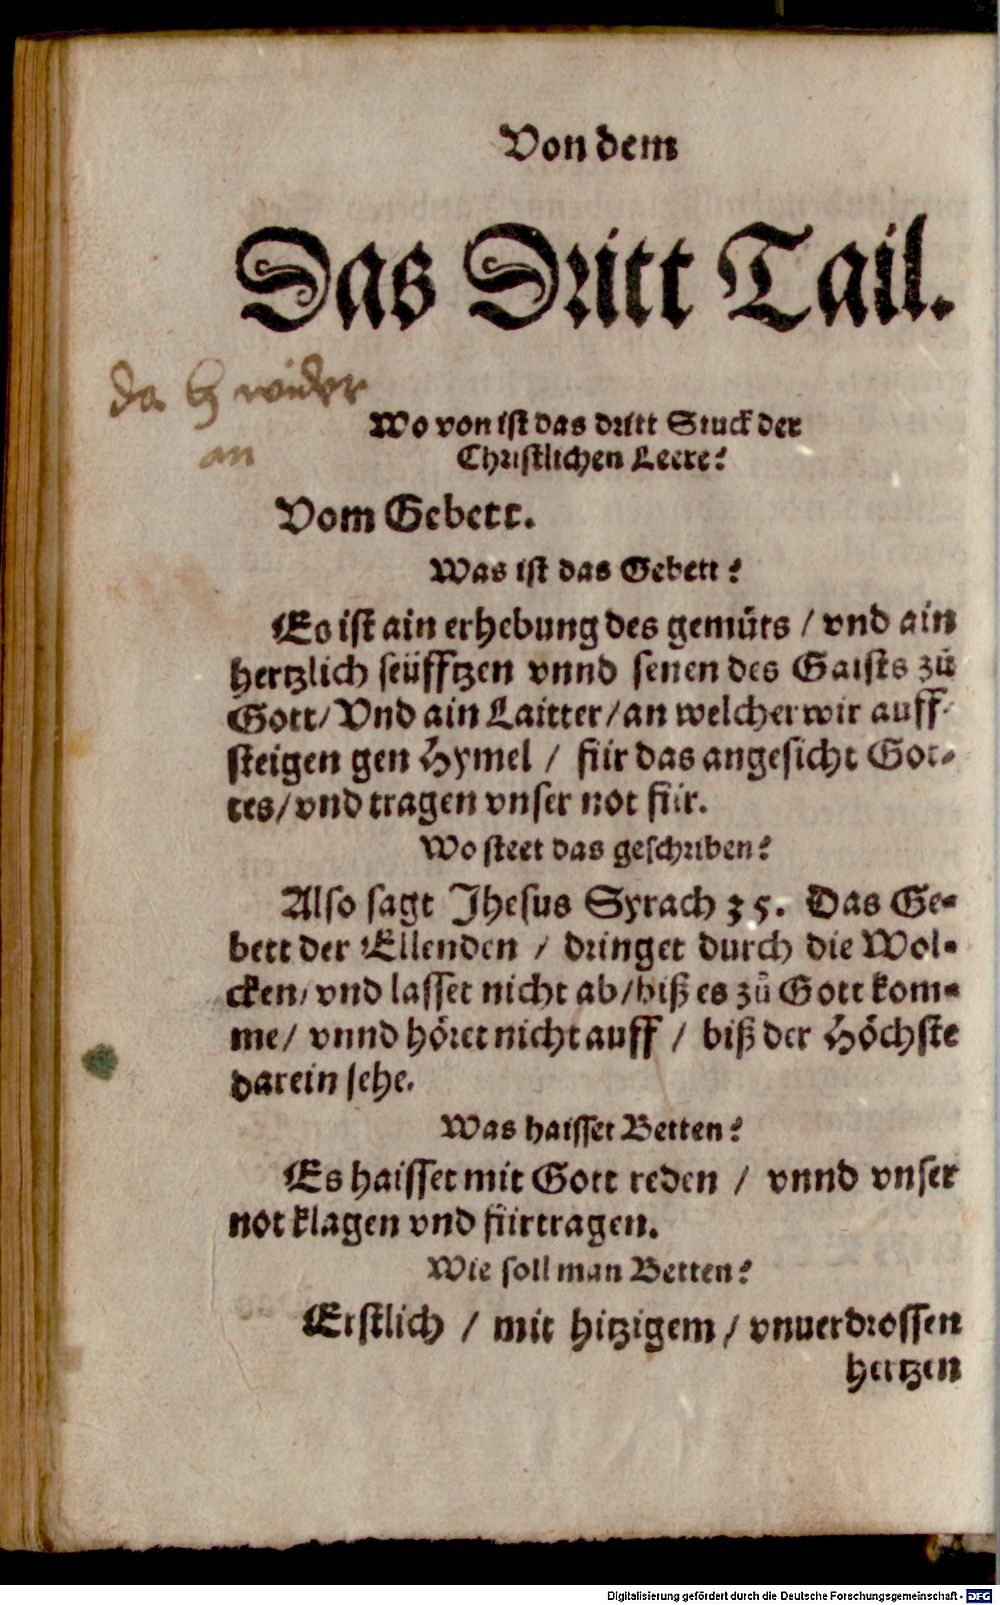 Von dem
Das Dritt Tail.
da wider
an
Wo von ist das dritt Stuck der
Christlichen Leere?
Vom Gebett.
Was ist das Gebett?
Es ist ain erhebung des gemüts / vnd ain
hertzlich seüfftzen vnnd senen des Gaists zů
Gott / Vnd ain Laitter / an welcher wir auff-
steigen gen Hymel / für das angesicht Got-
tes / vnd tragen vnser not für.
Wo steet das geschriben?
Also sagt Jhesus Syrach 35. Das Ge-
bett der Ellenden / dringet durch die Wol-
cken / vnd lasset nicht ab / biß es zů Gott kom-
me / vnnd höret nicht auff / biß der Höchste
darein sehe.
Was haisset Betten?
Es haisset mit Gott reden / vnnd vnser
not klagen vnd fürtragen.
Wie soll man Betten?
Erstlich / mit hitzigem / vnuerdrossen
hertzen
Digitalisierung gefördert durch die Deutsche Forschungsgemeinschaft - DFG